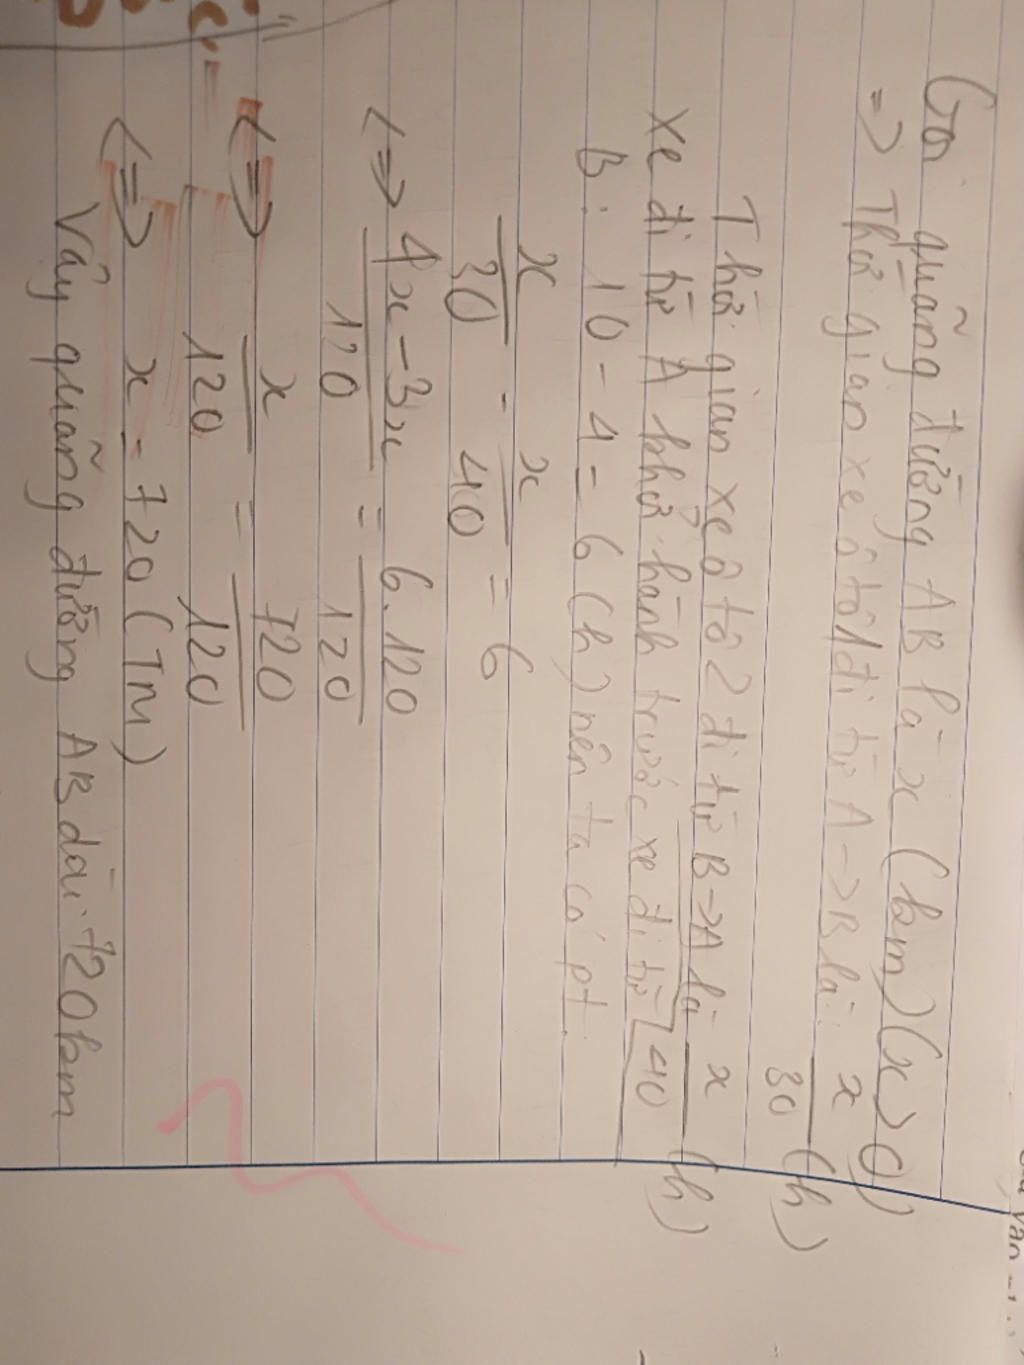 Gọi quãng đường AB là x (km) (x>0)
=> Thời gian xe ô tô 1 đi từ A->B là: x/30 (h)
Thời gian xe ô tô 2 đi từ B->A là x/40 (h)
Xe đi từ A khởi hành trước xe đi từ
B: 10 - 4 = 6 (h) nên ta có pt
x/30 - x/40 = 6
<=> 4x-3x/120 = 6.120/120
<=> x/120 = 720/120
<=> x = 720 (TM)
Vậy quãng đường AB dài 720km